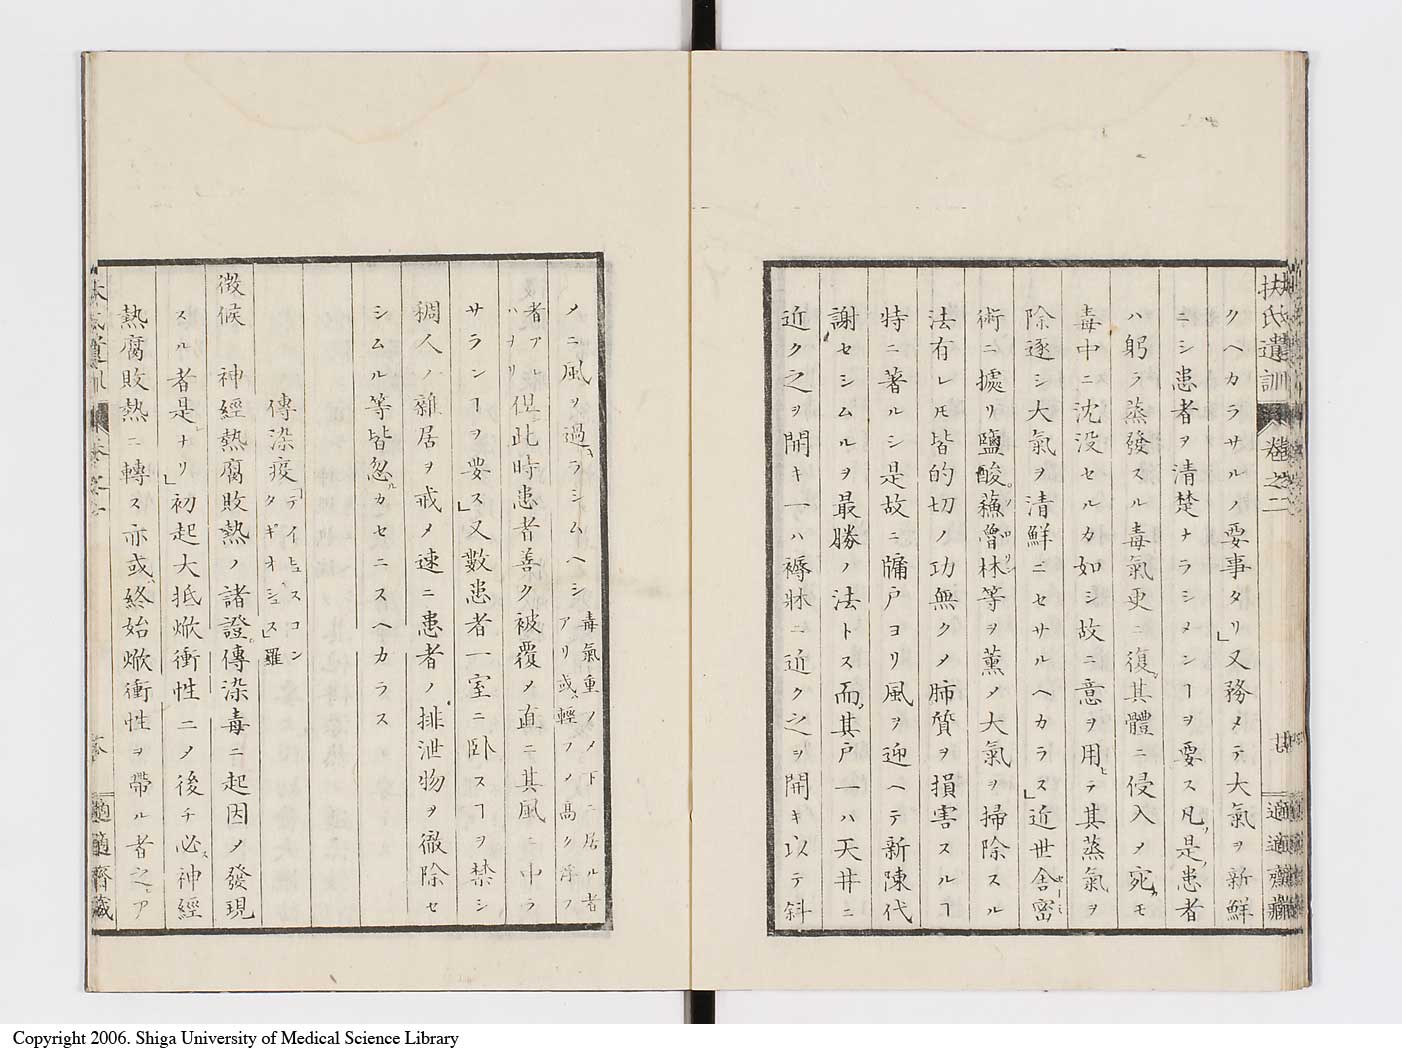 扶氏遺訓 卷之二 適適齋藏
クヘカラサルノ要事タリ」又務メテ大氣ヲ新鮮
ニシ患者ヲ清楚ナラシメンヿヲ要ス凡ソ是ノ患者
ハ躬ラ蒸發スル毒氣更ニ復其體ニ侵入メ宛モ
毒中ニ沈没セルカ如シ故ニ意ヲ用ヒテ其蒸氣ヲ
除逐シ大氣ヲ清鮮ニセサルヘカラス」近世舎密
術ニ據リ鹽酸蘓曾林等ヲ薫メ大氣ヲ掃除スル
法有レ𪜈皆的切ノ功無クメ肺質ヲ損害スルヿ
特ニ著ルシ是故ニ牗戸ヨリ風ヲ迎ヘテ新陳代
謝セシムルヲ最勝ノ法トス而其戸一ハ天井ニ
近ク之ヲ開キ一ハ褥牀ニ近ク之ヲ開キ以テ斜
メニ風ヲ過ラシムヘシ 毒氣重ノメ下ニ居ル者アリ或ハ輕フノ高ク浮フ
者アレハヲリ 但此時患者善ク被覆メ直ニ其風ニ中ラ
サランヿヲ要ス」又數患者一室ニ卧スヿヲ禁シ
稠人ノ雜居ヲ戒メ速ニ患者ノ排泄物ヲ徹除セ
シムル等皆忽カセニスヘカラス
傳染疫 テイヒュスコンタギオシュス」羅
徴候 神經熱腐敗熱ノ諸證傳染毒ニ起因メ發現
スル者是レナリ」初起大抵焮衝性ニメ後チ必ス神經
熱腐敗熱ニ轉ス亦或ハ終始焮衝性ヲ帶ル者之レア
適適齋藏
Copyright 2006. Shiga University of Medical Science Library